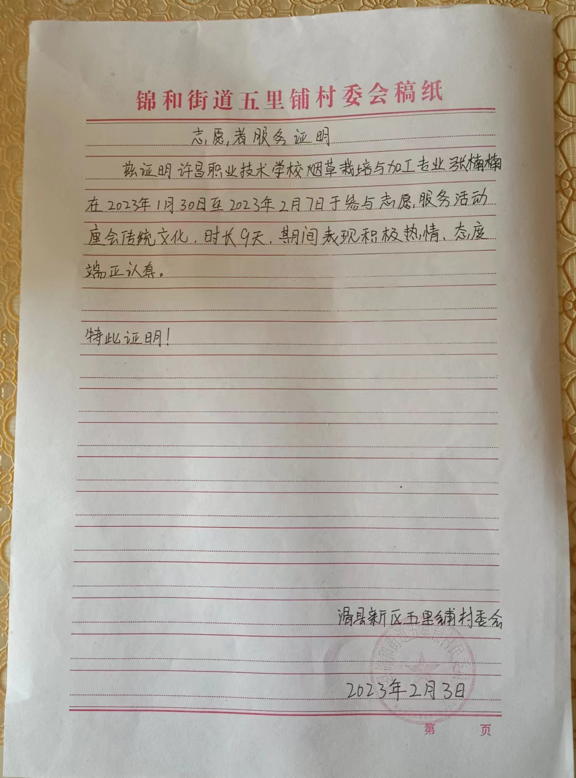 锦和街道五里铺村委会稿纸
志愿者服务证明
兹证明许昌职业技术学校烟草栽培与加工专业张楠楠
在2023年1月30日至2023年2月7日于参与志愿服务活动
座会传统文化、时长9天、期间表现积极热情、态度
端正认真。
特此证明!
滑县新区五里铺村委会
2023年2月3日
第 页